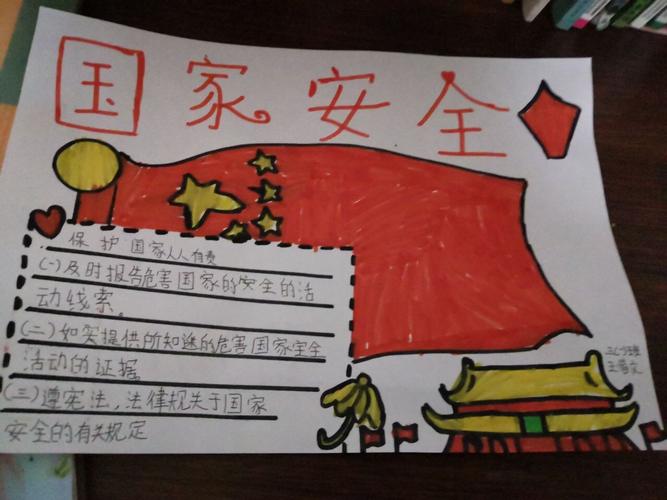 国家安全
保护国家人人有责
(一)及时报告危害国家的安全的活
动线索。
(二)如实提供所知道的危害国家安全
活动的证据
(三)遵宪法,法律规关于国家
安全的有关规定